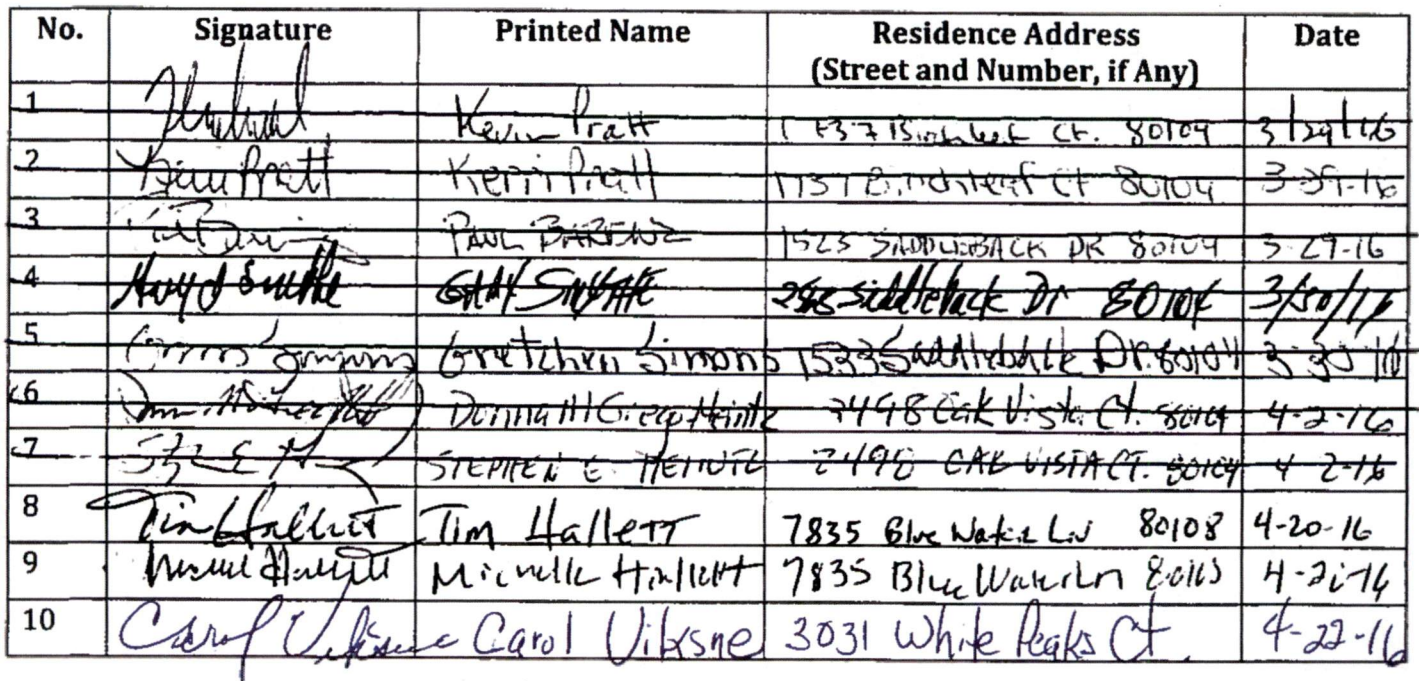 No. Signature Printed Name Residence Address Date
(Street and Number, if Any)
1 Kevin Pratt Ct. 80104 3/29/16
2 Kerri Pratt Kerri Pratt 1737 Birchleaf Ct 80104 3-29-16
3 PAUL BARENZ 1523 SADDLEBACK DR 80104 3-29-16
4 Saddleback Dr 80104 3/30/16
5 Gretchen Simons 1533 Saddleback Dr. 80104 3-30-16
6 Donna 2498 Oak Vista Ct. 80104 4-2-16
7 STEPHEN E HEINTZ 2498 OAK VISTA CT. 80104 4-2-16
8 Tim Hallett Tim Hallett 7835 Blue Water Ln 80108 4-20-16
9 Michelle Hallett 7835 Blue Water Ln
10 Carol Viksne Carol Viksne 3031 White Peaks Ct. 4-22-16